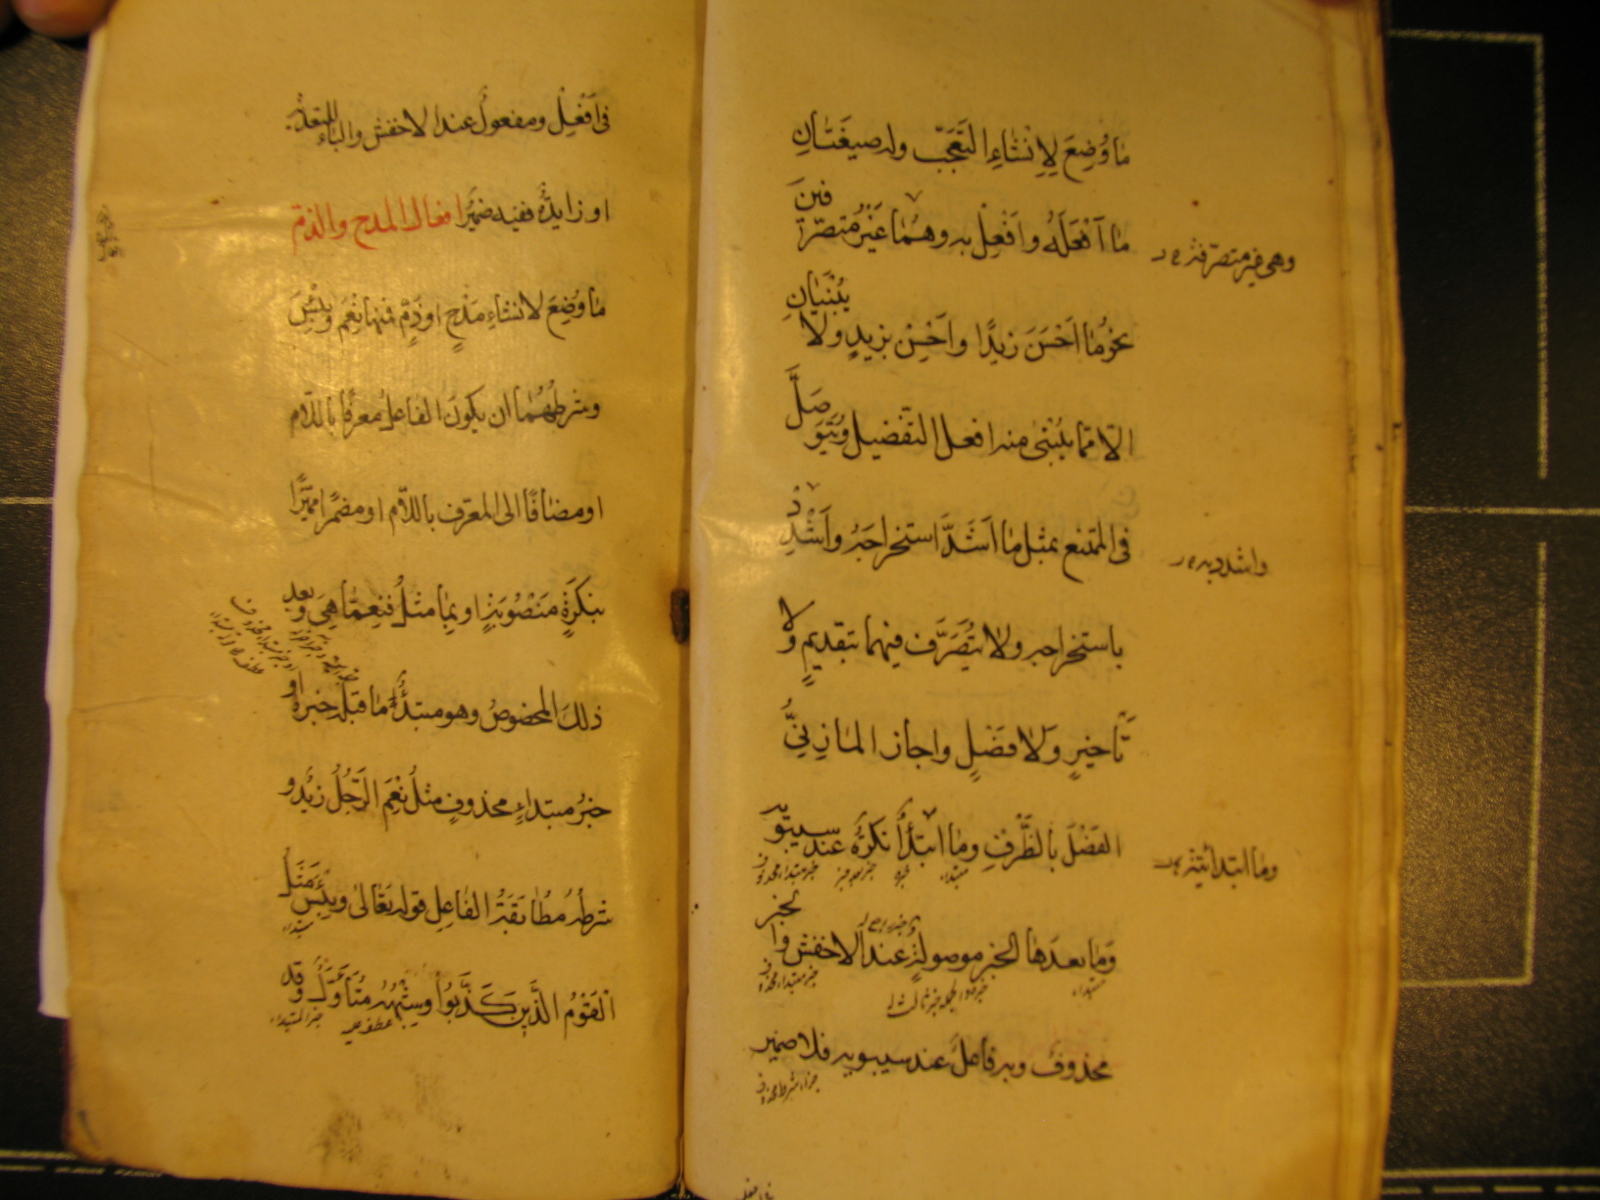 مٰا وُضِعَ لِاِنْشٰاءِ التَّعَجُّبِ وله صيغَتٰانِ
مٰا اَفْعَلَهُ واَفْعِلْ به وهُمٰا غَيْرُ مُتَصَرِّفَيْنِ
وهى غير متصرّفة
نحو مٰا اَحْسَنَ زيدًا واَحْسِنْ بزيدٍ ولا يُبْنَيٰانِ
الّا ممّا يُبْنىٰ منه افعل التفضيل ويُتَوَصَّلُ
فى الممتنع بمثل مٰا اَشَدَّ استخراجَهُ واَشْدِدْ
واشدد به
باستخراجه ولا يُتَصَرَّف فيهما بتقديمٍ ولا
تَأخيرٍ ولا فَصْلٍ واجاز المٰازِنِىُّ
الفَصْلَ بالظَّرْفِ ومٰا ابْتِدٰاءٌ نكرةٌ عند سيبويه
ومٰا ابتدائية
مبتداء
خبر مبتداء محذوف
ومٰا بعدَهٰا الخبر موصولةٌ عند الاخفش والخبر
مبتداء
خبر مبتداء محذوف
محذوفٌ وبه فاعلٌ عند سيبويه فلا ضمير
جزاء شرط محذوف
فى اَفْعِلْ ومفعولٌ عند الاخفش والباء للتعدية
او زايدةٌ ففيه ضميرٌ افعال المدح والذمّ
مٰا وُضِعَ لانشٰاءِ مَدْحٍ او ذَمٍّ فمنها نِعْمَ وبِئْسَ
وشرطُهُمٰا ان يكونَ الفاعلُ معرفًا باللّام
او مضٰافًا الى المعرّف باللّام او مضمرًا مميَّزًا
بنكرَةٍ مَنْصُوبَةٍ او بمٰا مثلُ فنِعِمّا هِىَ وبعد
ذلك المخصُوصُ وهو مبتدأٌ مٰا قبلَه خبرُهُ او
خبرُ مبتداءٍ محذوفٍ مثلُ نِعْمَ الرَّجُلُ زيْدٌ و
شرطُهُ مُطٰابَقَةُ الفاعِلِ قوله تعٰالىٰ وبِئْسَ مَثَلُ
مبتداء
الْقَوْمِ الَّذِينَ كَذَّبُوا وشِبْهُهُ مُتَأَوَّلٌ وقد
عطف
خبر المبتداء